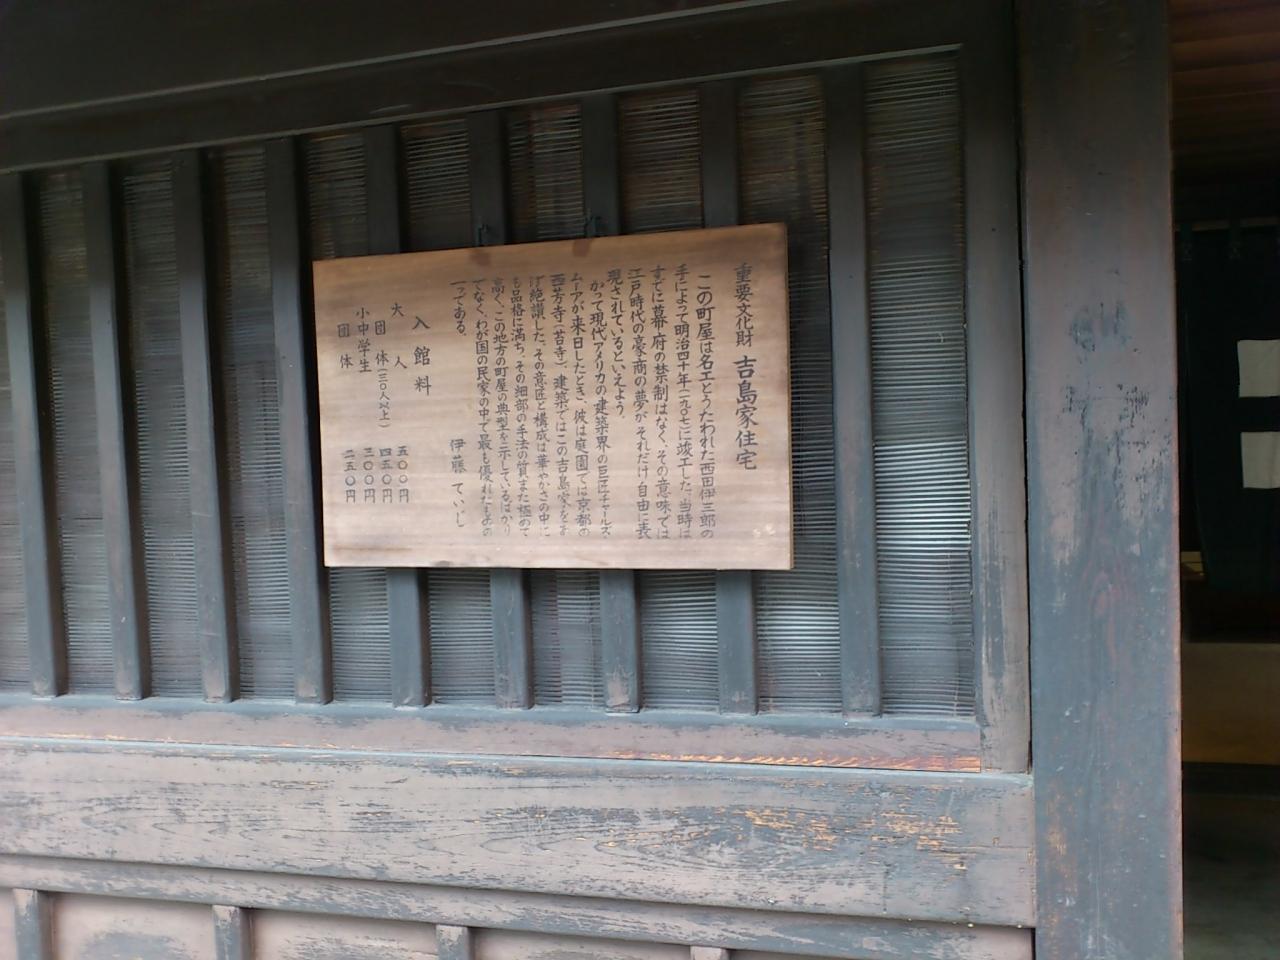 重要文化財 吉島家住宅
この町屋は名工とうたわれた西田伊三郎の
手によって明治四十年(一九〇七)に竣工した。当時は
すでに幕府の禁制はなく、その意味では
江戸時代の豪商の夢がそれだけ自由に表
現されているといえよう。
かつて現代アメリカの建築界の巨匠チャールズ・
ムーアが来日したとき、彼は庭園では京都の
西芳寺(苔寺)、建築ではこの吉島家をあ
げ絶讃した。その意匠と構成は華やかさの中に
も品格に満ち、その細部の手法の質また極めて
高く、この地方の町屋の典型を示しているばかり
でなく、わが国の民家の中で最も優れたものの
一つである。
伊藤 ていじ
入館料
大人 五〇〇円
団体(三〇人以上) 四五〇円
小中学生 三〇〇円
団体 二五〇円